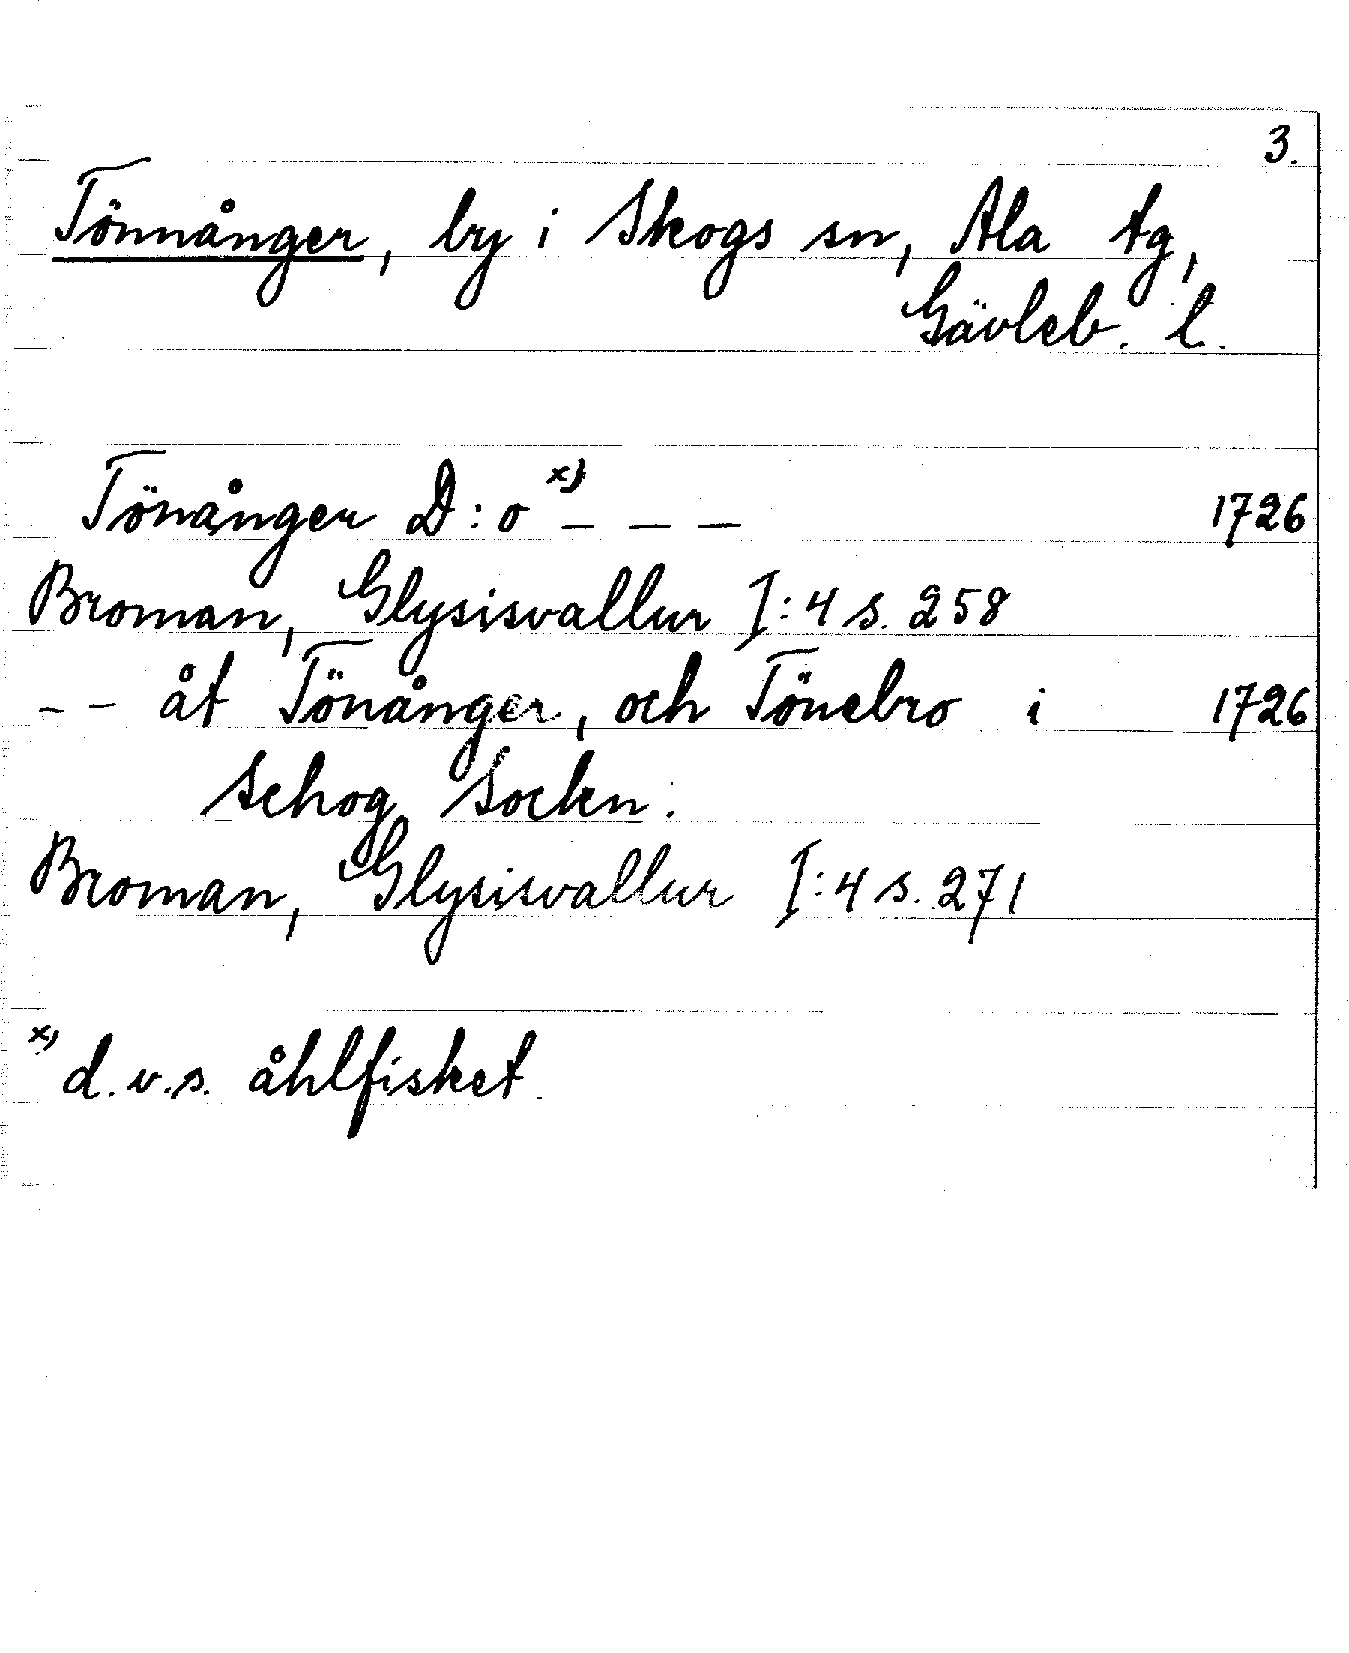 3.
Tönnånger, by i Skogs sn, Ala tg,
Gävleb. l.
Tönånger D:o x) - - - 1726
Broman, Glysisvallur I:4 s. 258
- - åt Tönånger, och Tönebro i 1726
Schog Sockn.
Broman, Glysisvallur I:4 s. 271
x) d.v.s. åhlfisket.